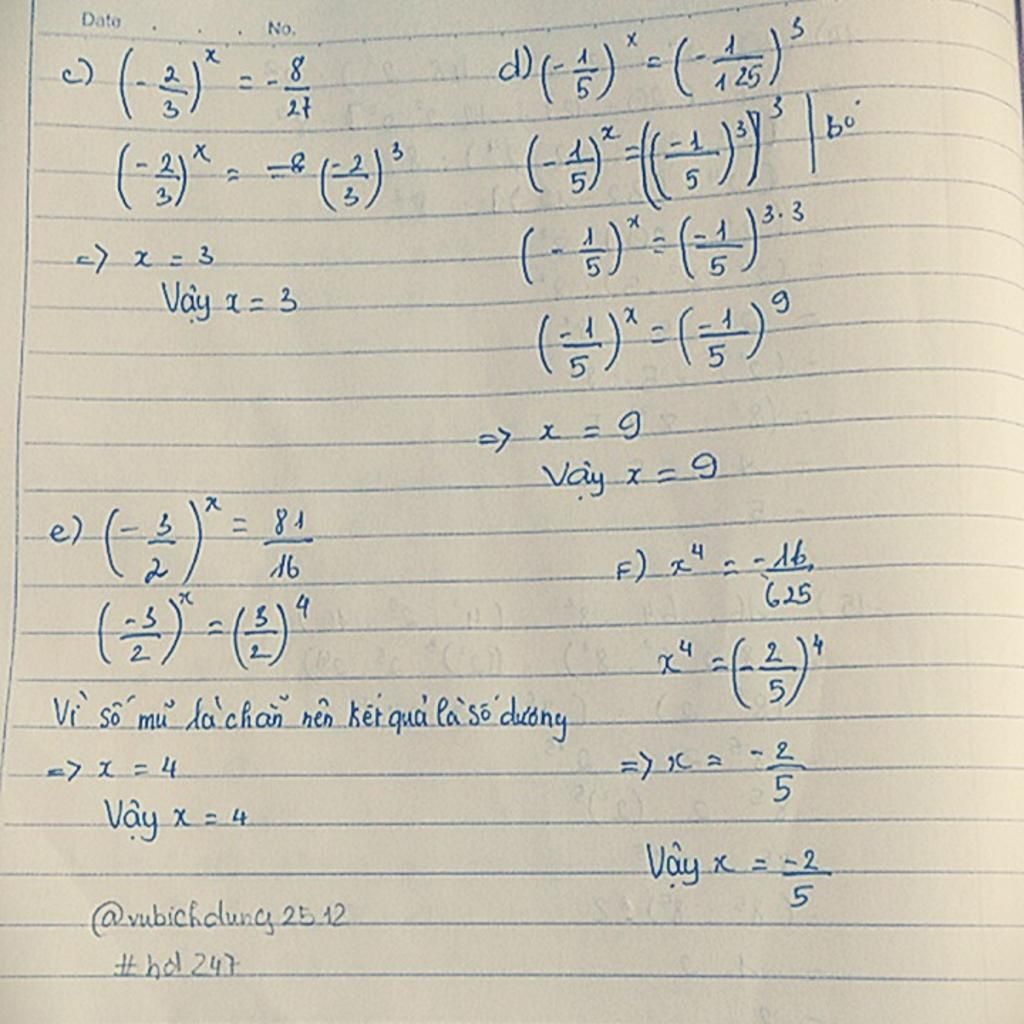 Date . . . No.
c) (-2/3)^x = -8/27
(-2/3)^x = (-2/3)^3
=> x = 3
Vậy x = 3
d) (-1/5)^x = (-1/125)^3
(-1/5)^x = ((-1/5)^3)^3 | bỏ
(-1/5)^x = (-1/5)^3.3
(-1/5)^x = (-1/5)^9
=> x = 9
Vậy x = 9
e) (-3/2)^x = 81/16
(-3/2)^x = (3/2)^4
Vì số mũ là chẵn nên kết quả là số dương
=> x = 4
Vậy x = 4
F) x^4 = -16/625
x^4 = (-2/5)^4
=> x = -2/5
Vậy x = -2/5
@vubichdung2512
#hd247